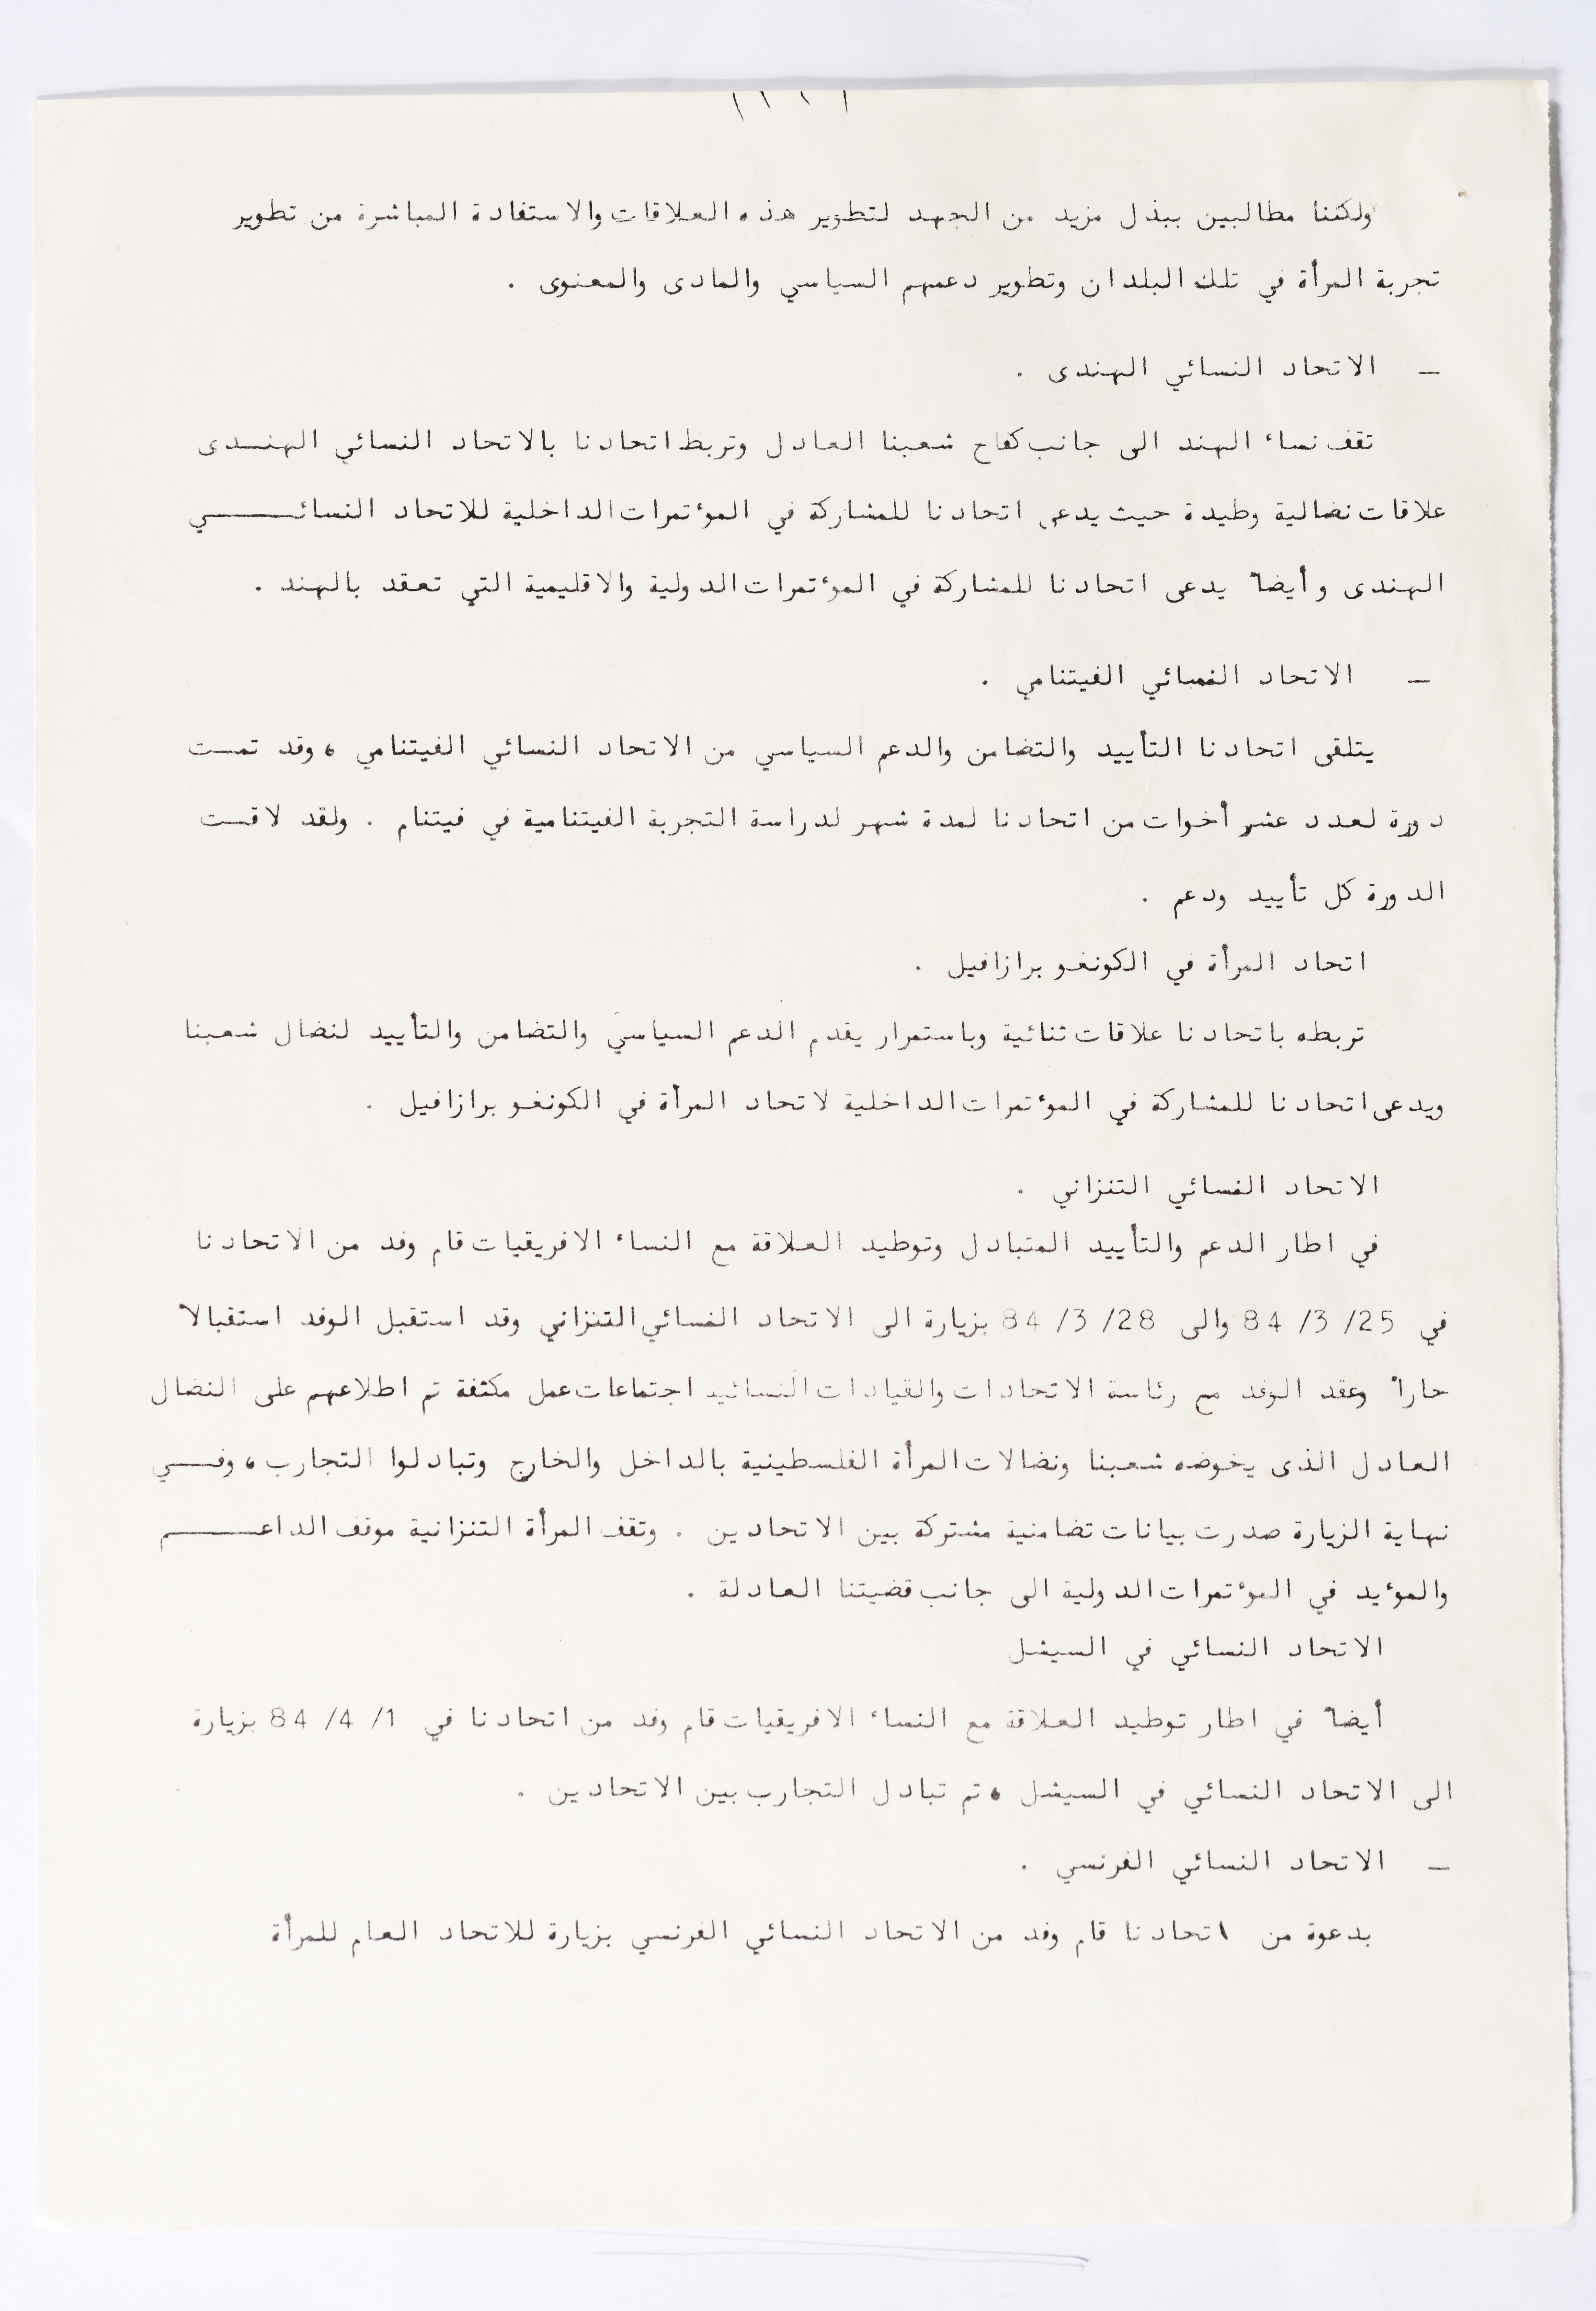 ولكننا مطالبين ببذل مزيد من الجهد لتطوير هذه العلاقات والاستفادة المباشرة من تطوير
تجربة المرأة في تلك البلدان وتطوير دعمهم السياسي والمادى والمعنوى .
ـ الاتحاد النسائي الهندى .
تقف نساء الهند الى جانب كفاح شعبنا العادل وتربط اتحادنا بالاتحاد النسائي الهنـــدى
علاقات نضالية وطيدة حيث يدعى اتحادنا للمشاركة في المؤتمرات الداخلية للاتحاد النسائـــــــي
الهندى وأيضا" يدعى اتحادنا للمشاركة في المؤتمرات الدولية والاقليمية التي تعقد بالهند .
ـ الاتحاد النسائي الفيتنامي .
يتلقى اتحادنا التأييد والتضامن والدعم السياسي من الاتحاد النسائي الفيتنامي ، وقد تمــت
دورة لعدد عشر أخوات من اتحادنا لمدة شهر لدراسة التجربة الفيتنامية في فيتنام . ولقد لاقــت
الدورة كل تأييد ودعم .
اتحاد المرأة في الكونغو برازافيل .
تربطه باتحادنا علاقات ثنائية وباستمرار يقدم الدعم السياسي والتضامن والتأييد لنضال شعبنا
ويدعى اتحادنا للمشاركة في المؤتمرات الداخلية لاتحاد المرأة في الكونغو برازافيل .
الاتحاد النسائي التنزاني .
في اطار الدعم والتأييد المتبادل وتوطيد العلاقة مع النساء الافريقيات قام وفد من الاتحادنا
في 25/ 3/ 84 والى 28/ 3/ 84 بزيارة الى الاتحاد النسائي التنزاني وقد استقبل الوفد استقبالا"
حارا" وعقد الوفد مع رئاسة الاتحادات والقيادات النسائيد اجتماعات عمل مكثفة تم اطلاعهم على النضال
العادل الذى يخوضه شعبنا ونضالات المرأة الفلسطينية بالداخل والخارج وتبادلوا التجارب ، وفـــي
نهاية الزيارة صدرت بيانات تضامنية مشتركة بين الاتحادين . وتقف المرأة التنزانية موقف الداعـــــــم
والمؤيد في المؤتمرات الدولية الى جانب قضيتنا العادلة .
الاتحاد النسائي في السيشل
أيضا" في اطار توطيد العلاقة مع النساء الافريقيات قام وفد من اتحادنا في 1/ 4/ 84 بزيارة
الى الاتحاد النسائي في السيشل ، تم تبادل التجارب بين الاتحادين .
ـ الاتحاد النسائي الفرنسي .
بدعوة من اتحادنا قام وفد من الاتحاد النسائي الفرنسي بزيارة للاتحاد العام للمرأة